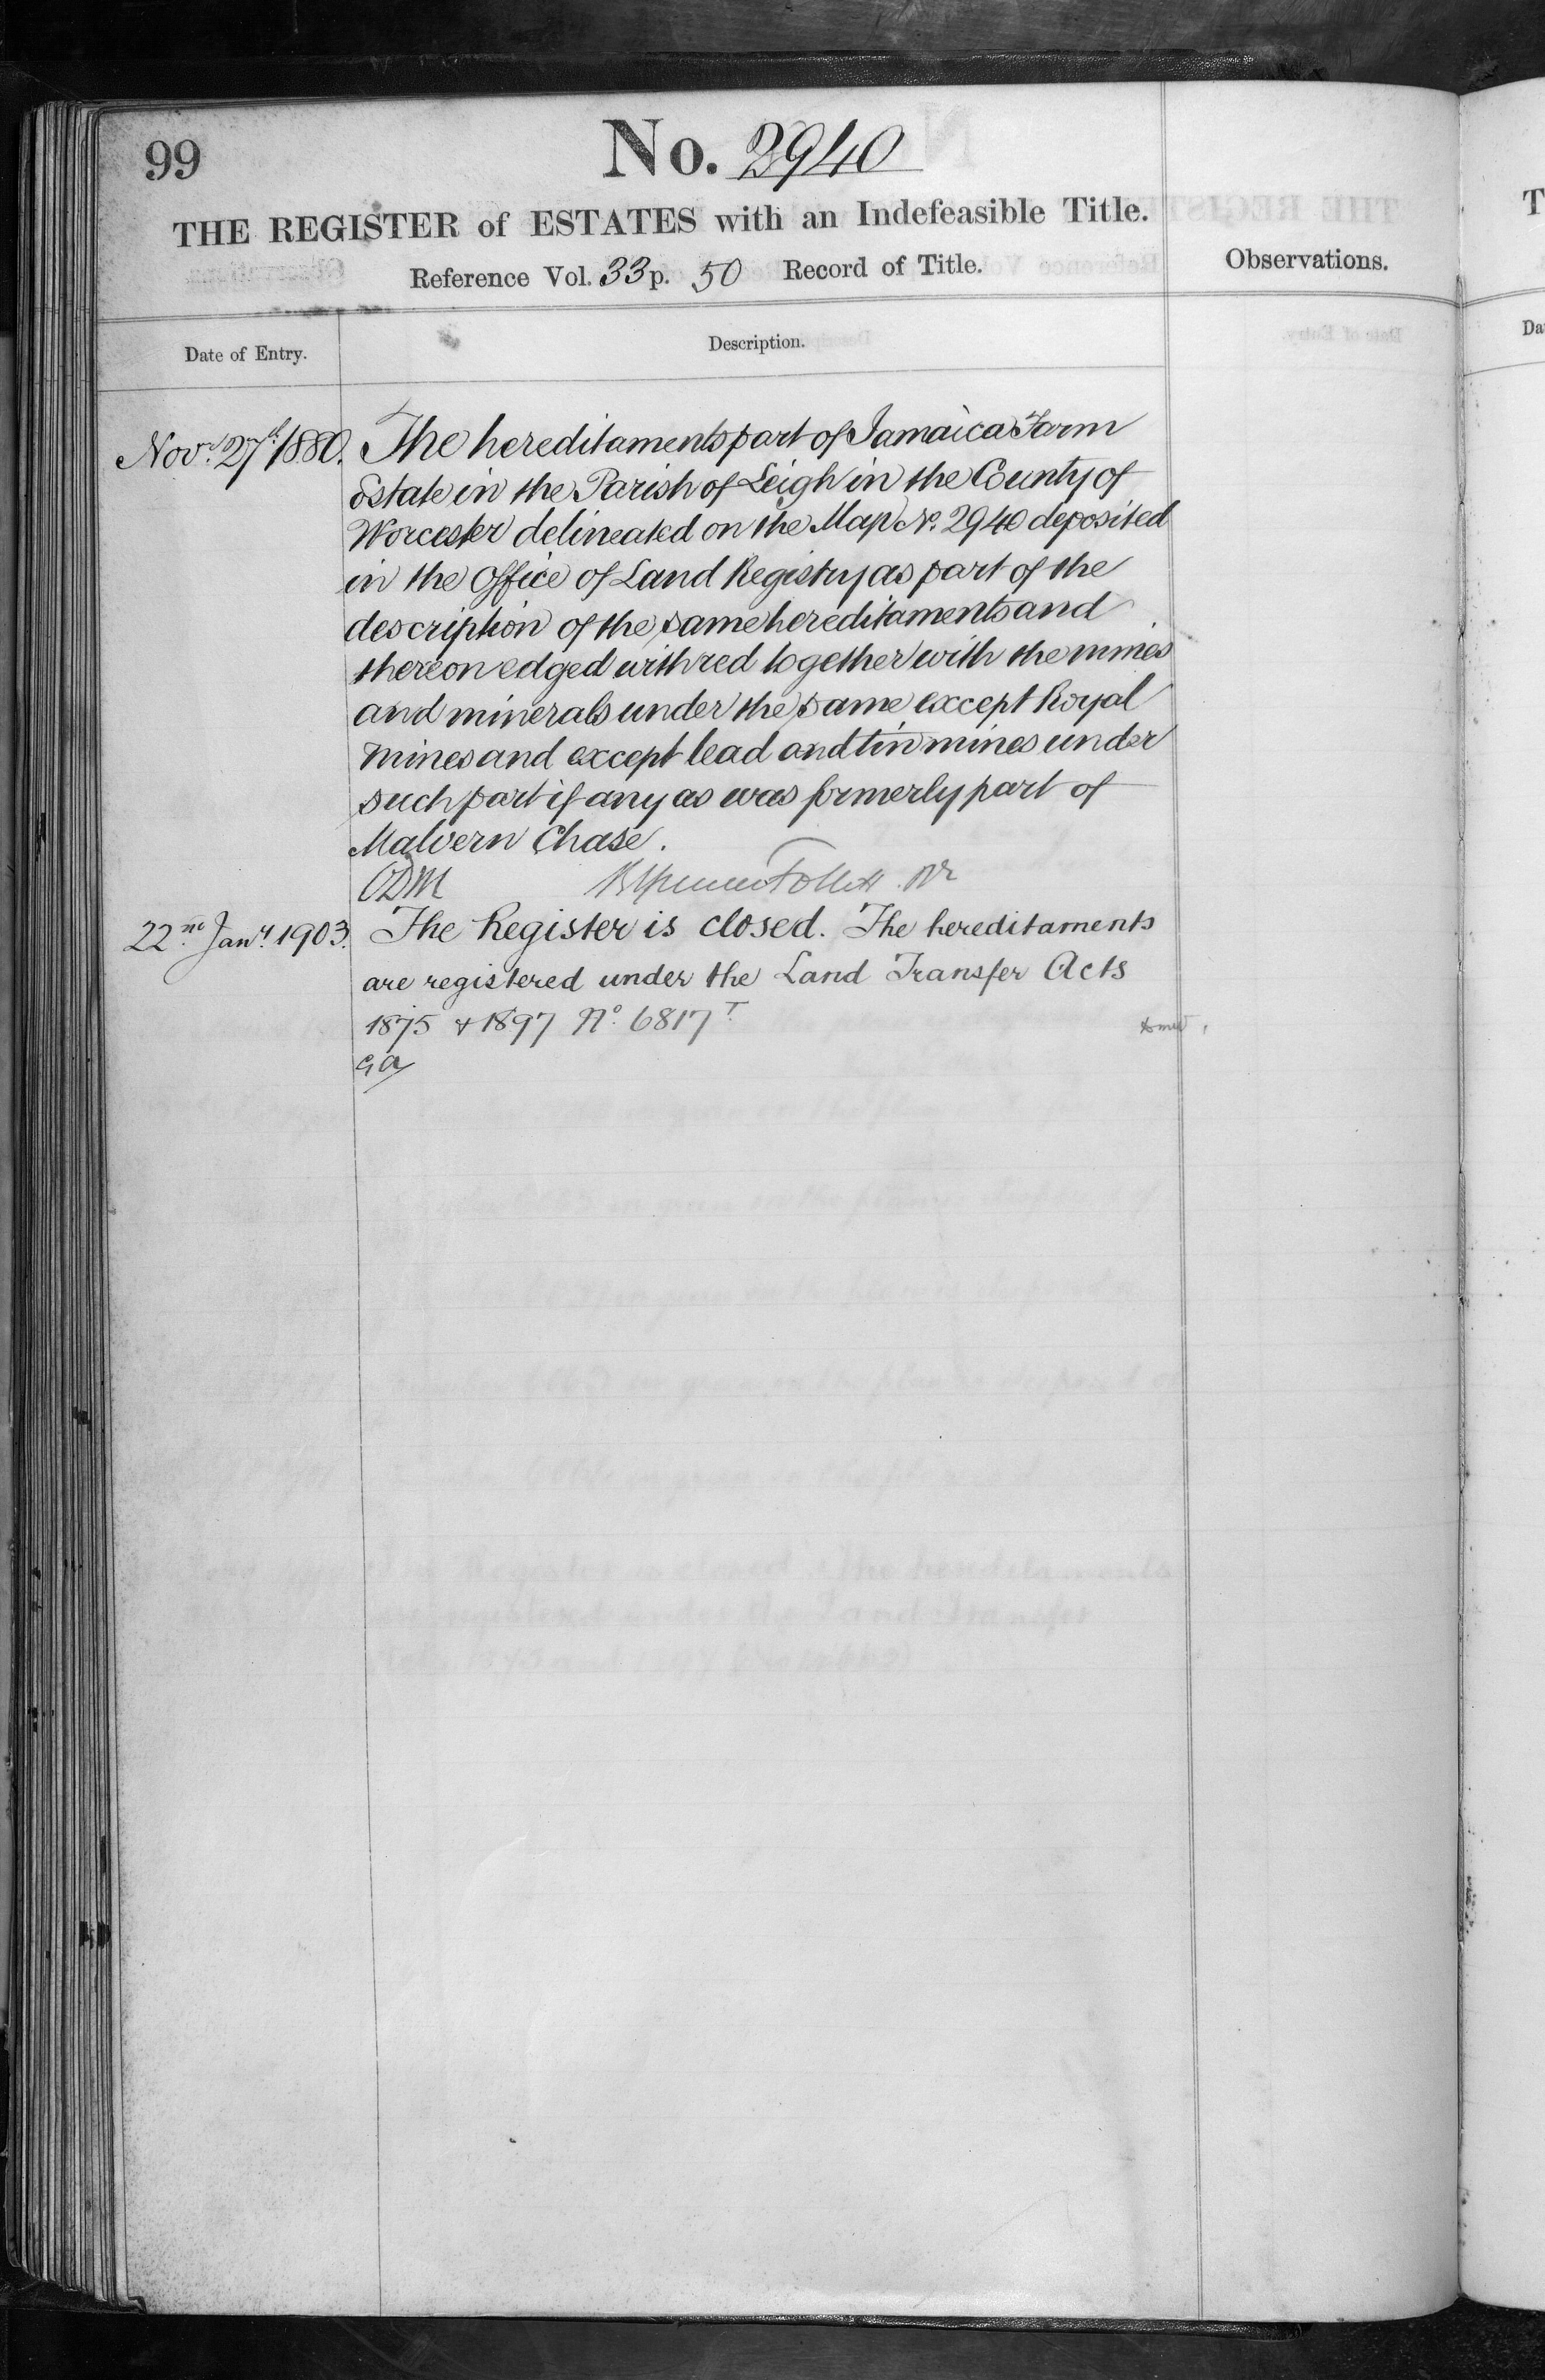 99
No. 2940
THE REGISTER of ESTATES with an Indefeasible Title.
Reference Vol. 33 p. 50 Record of Title.
Observations.
Date of Entry.
Description.
Novr. 27th. 1880. The hereditaments part of Jamaica Farm
Estate in the Parish of Leigh in the County of
Worcester delineated on the Map No. 2940 deposited
in the Office of Land Registry as part of the
description of the same hereditaments and
thereon edged with red together with the mines
and minerals under the same except Royal
Mines and except lead and tin mines under
such part if any as was formerly part of
Malvern Chase.
ODM Follett
22nd. Jany. 1903. The Register is closed. The hereditaments
are registered under the Land Transfer Acts
1875 & 1897 No. 6817 T.
GA